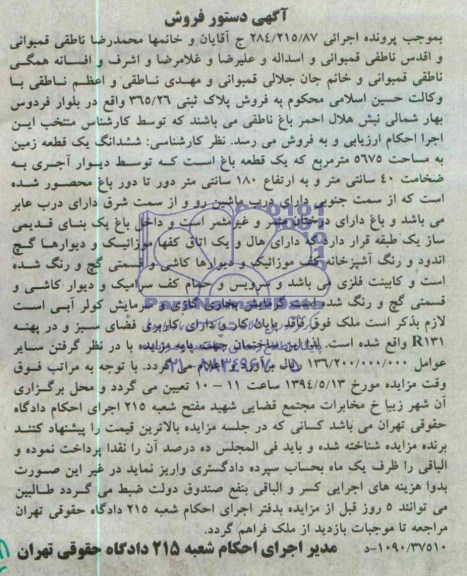 آگهی دستور فروش
بموجب پرونده اجرائی ۲۸۴/۲۱۵/۸۷ ج آقایان و خانمها محمدرضا ناطقی قمبوانی
و اقدس ناطقی قمبوانی و اسداله و علیرضا و غلامرضا و اشرف و افسانه همگی
ناطقی قمبوانی و خانم جان جلالی قمبوانی و مهدی ناطقی و اعظم ناطقی با
وکالت حسین اسلامی محکوم به فروش پلاک ثبتی ۳۶۵/۲۶ واقع در بلوار فردوس
بهار شمالی نبش هلال احمر باغ ناطقی می باشند که توسط کارشناس منتخب این
اجرا احکام ارزیابی و به فروش می رسد. نظر کارشناسی: ششدانگ یک قطعه زمین
به مساحت ۵۶۷۵ مترمربع که یک قطعه باغ است که توسط دیوار آجری به
ضخامت ۴۰ سانتی متر و به ارتفاع ۱۸۰ سانتی متر دور تا دور باغ محصور شده
است که از سمت جنوبی دارای درب ماشین رو و از سمت شرق دارای درب عابر
می باشد و باغ دارای درختان مثمر و غیرمثمر است و داخل باغ یک بنای قدیمی
ساز یک طبقه قرار دارد که دارای هال و یک اتاق کفها موزائیک و دیوارها گچ
اندود و رنگ آشپزخانه کف موزائیک و دیوارها کاشی و قسمتی گچ و رنگ شده
است و کابینت فلزی می باشد و سرویس و حمام کف سرامیک و دیوار کاشی و
قسمتی گچ و رنگ شده است گرمایش بخاری گازی و سرمایش کولر آبی است
لازم بذکر است ملک فوق فاقد پایان کار و دارای کاربری فضای سبز و در پهنه
R۱۳۱ واقع شده است. لذا این ساختمان جهت پایه مزایده با در نظر گرفتن سایر
عوامل ۱۳۶/۲۰۰/۰۰۰/۰۰۰ ریال برآورد و اعلام می گردد. با توجه به مراتب فوق
وقت مزایده مورخ ۱۳۹۴/۵/۱۳ ساعت ۱۱ - ۱۰ تعیین می گردد و محل برگزاری
آن شهر زیبا خ مخابرات مجتمع قضایی شهید مفتح شعبه ۲۱۵ اجرای احکام دادگاه
حقوقی تهران می باشد کسانی که در جلسه مزایده بالاترین قیمت را پیشنهاد کنند
برنده مزایده شناخته شده و باید فی المجلس ده درصد آن را نقدا پرداخت نموده و
الباقی را ظرف یک ماه بحساب سپرده دادگستری واریز نماید در غیر این صورت
بدوا هزینه های اجرایی کسر و الباقی بنفع صندوق دولت ضبط می گردد طالبین
می توانند ۵ روز قبل از مزایده بدفتر اجرای احکام شعبه ۲۱۵ دادگاه حقوقی تهران
مراجعه تا موجبات بازدید از ملک فراهم گردد.
۱۰۹۰/۳۷۵۱۰-د مدیر اجرای احکام شعبه ۲۱۵ دادگاه حقوقی تهران